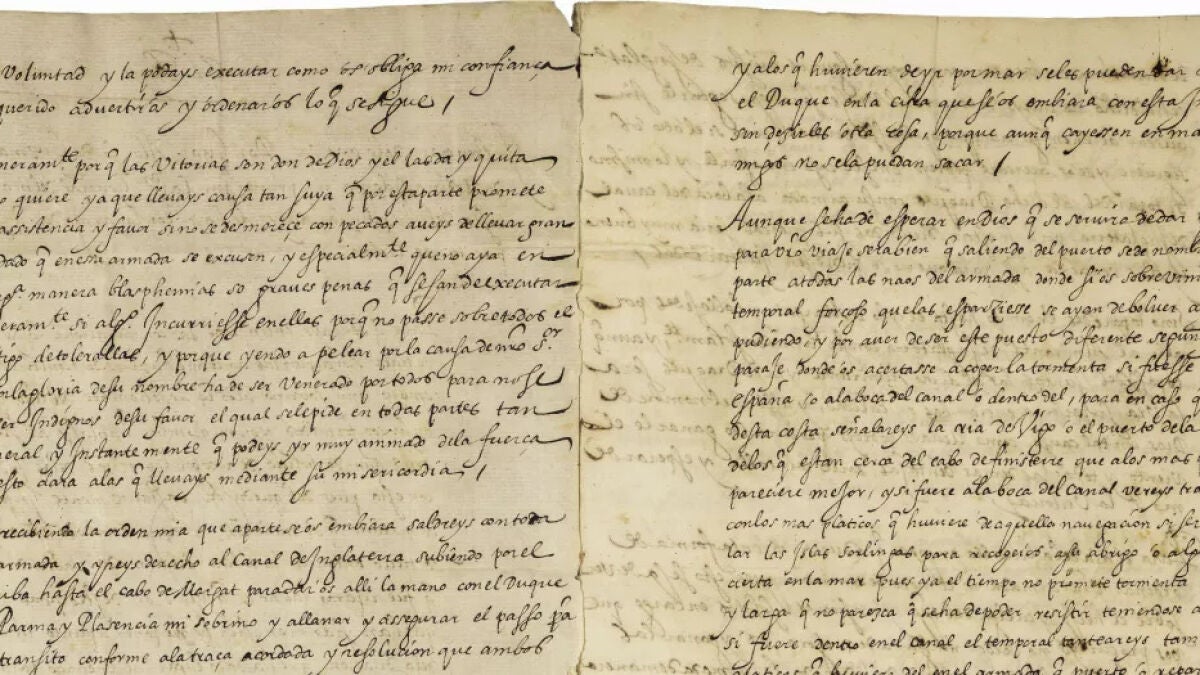 Voluntad y la podays executar como os obliga mi confiança
querido advertiros y ordenaros lo q̃ se sigue /
neram.te por q̃ las Vitorias son don de Dios y el las da y quita
o quiere ya que llevays causa tan suya q̃ por esta parte promete
assistencia y favor si no se desmereçe con pecados aveys de llevar gran
dado q̃ en essa armada se escusen, y especialm.te que no aya en
manera blasphemias so graves penas q̃ se han de executar
eram.te si alg.º Incurriesse en ellas porq̃ no passe sobre todos el
tigo de tolerallas, y porque yendo a pelear por la causa de nro S.or
en la gloria de su nombre ha de ser Venerado por todos para no se
er Indignos de su favor el qual se le pide en todas partes tan
neral y Instantemente q̃ podeys yr muy animado de la fuerça
esto dara a las q̃ llevays mediante su misericordia /
recibiendo la orden mia que aparte se os embiara saldreys con toda
armada y yreys derecho al Canal de Inglaterra subiendo por el
iba hasta el cabo de Margat para daros alli la mano con el Duque
Parma y Plasencia mi sobrino y allanar y assegurar el passo p.a
transito conforme a la traça acordada y resolucion que ambos
y a los q̃ huvieren de yr por mar se les pueden dar
el Duque en la cifra que se os embiara con esta
sin dezirles otra cosa, porque aunq̃ cayessen en ma
migos no se la puedan sacar /
Aunque se ha de esperar en Dios q̃ se servira de dar
para vro viaje sera bien q̃ saliendo del puerto se de nomb
parte a todas las naos del armada donde si os sobrevini
temporal forçoso que las esparziesse se ayan de bolver a
pudiendo, y por aver de ser este puesto diferente segun
paraje donde os açertasse a coger la tormenta si fuesse
españa o a la boca del canal o dentro del, para en caso q
desta costa señalareys la ria de Vigo o el puerto de la
de los q̃ estan cerca del cabo de finisterre que a los mas
pareciere mejor, y si fuere a la boca del canal vereys tra
con los mas platicos q̃ huviere de aquella navegacion si ser
lar las Islas Sorlingas para recogeros a su abrigo o alg
cierta en la mar pues ya el tiempo no promete tormenta
y larga q̃ no parezca q̃ se ha de poder resistir teniendose a
si fuere dentro en el canal el temporal tanteareys tam
platicos q̃ huviere del en el armada q̃ puerto o repar